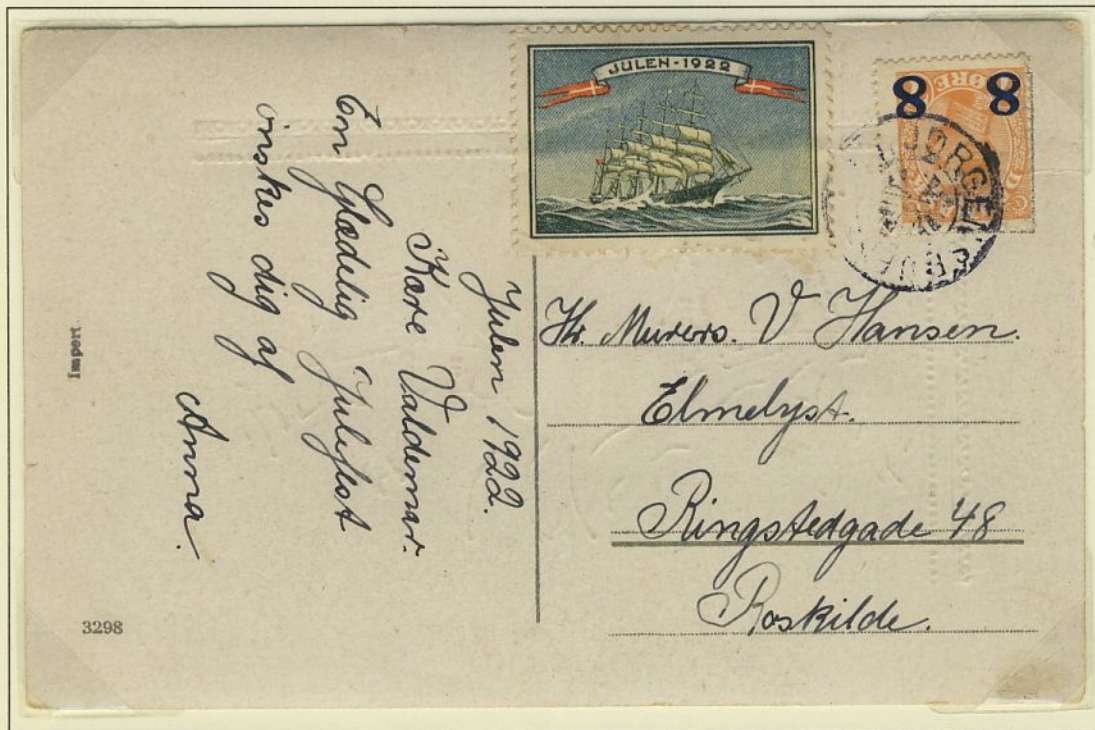 JULEN-1922
8 8
ØRE
JØRGE
Julen 1922.
Kære Valdemar.
En Glædelig Julefest
önskes dig af
Anna.
Hr. Murers. V Hansen.
Elmelyst.
Ringstedgade 48
Roskilde.
Import
3298